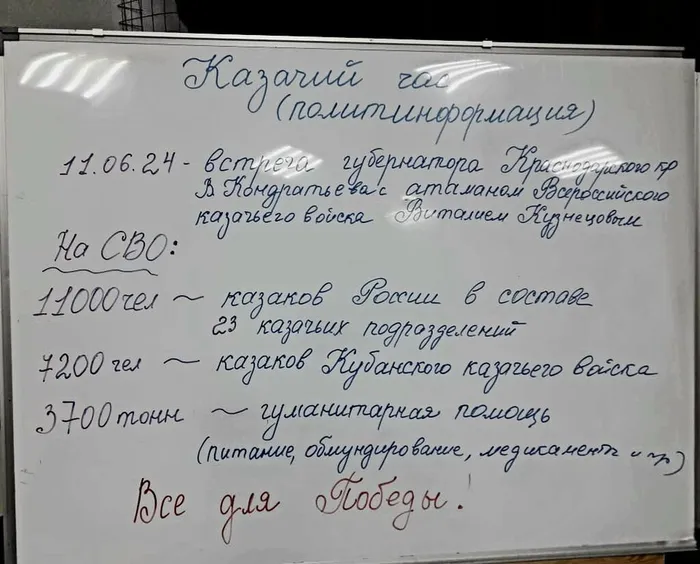 Казачий час
(политинформация)
11.06.24 - встреча губернатора Краснодарского кр
В Кондратьева с атаманом Всероссийского
казачьего войска Виталием Кузнецовым
На СВО:
11000 чел ~ казаков России в составе
23 казачьих подразделений
7200 чел ~ казаков Кубанского казачьего войска
3700 тонн ~ гуманитарная помощь
(питание, обмундирование, медикаменты и пр)
Все для Победы!